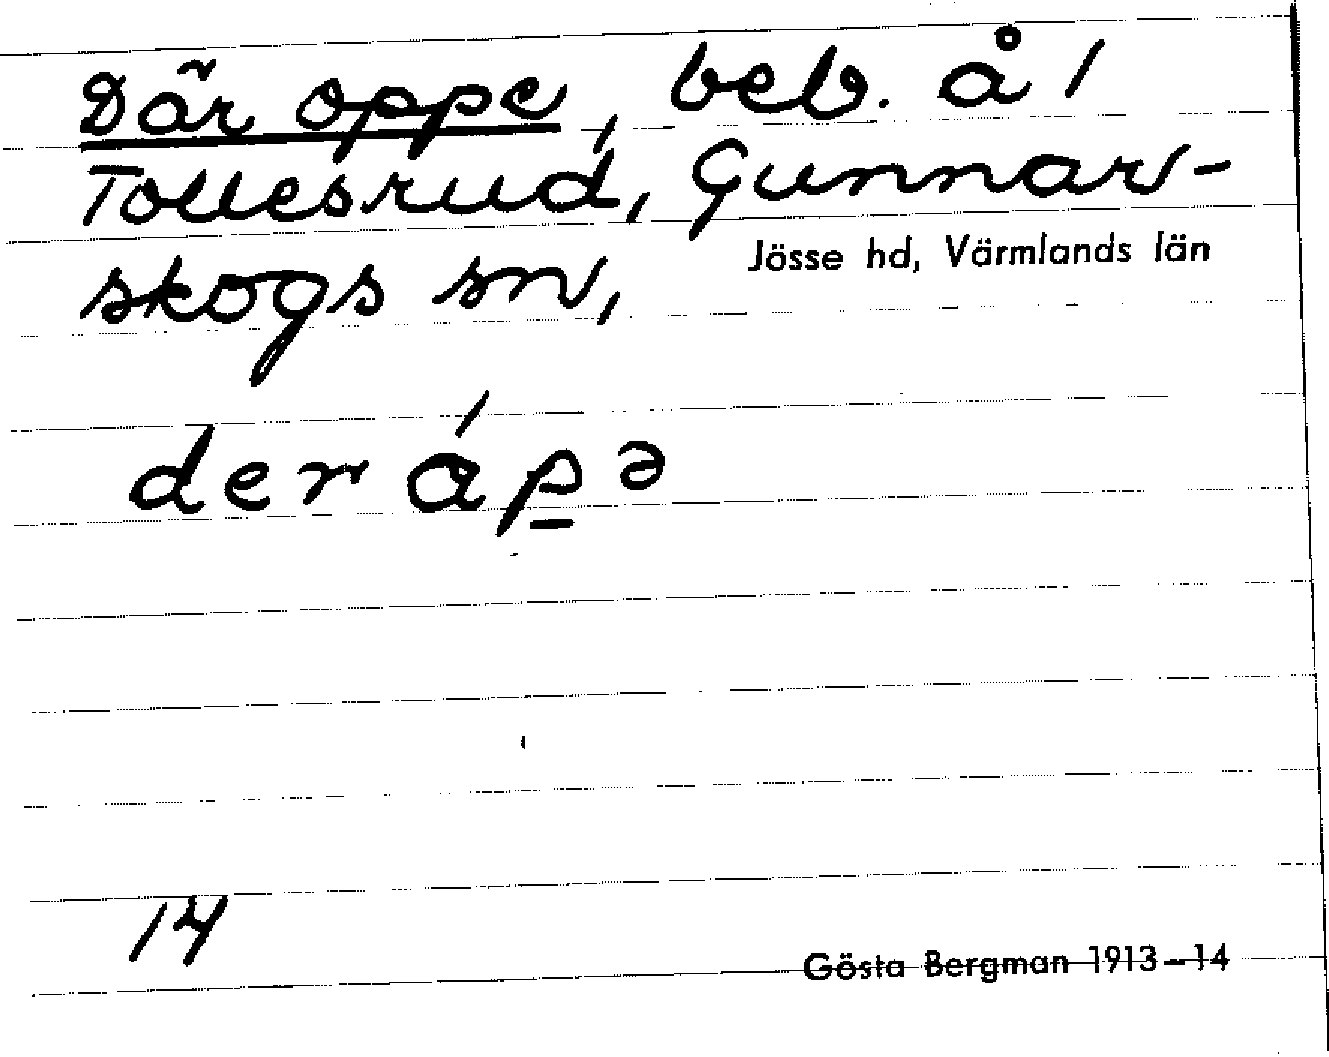 Där oppe, beb. å 1
Tollesrud, Gunnar-
skogs sn,
Jösse hd, Värmlands län
der áp̲ə
14
Gösta Bergman 1913–14